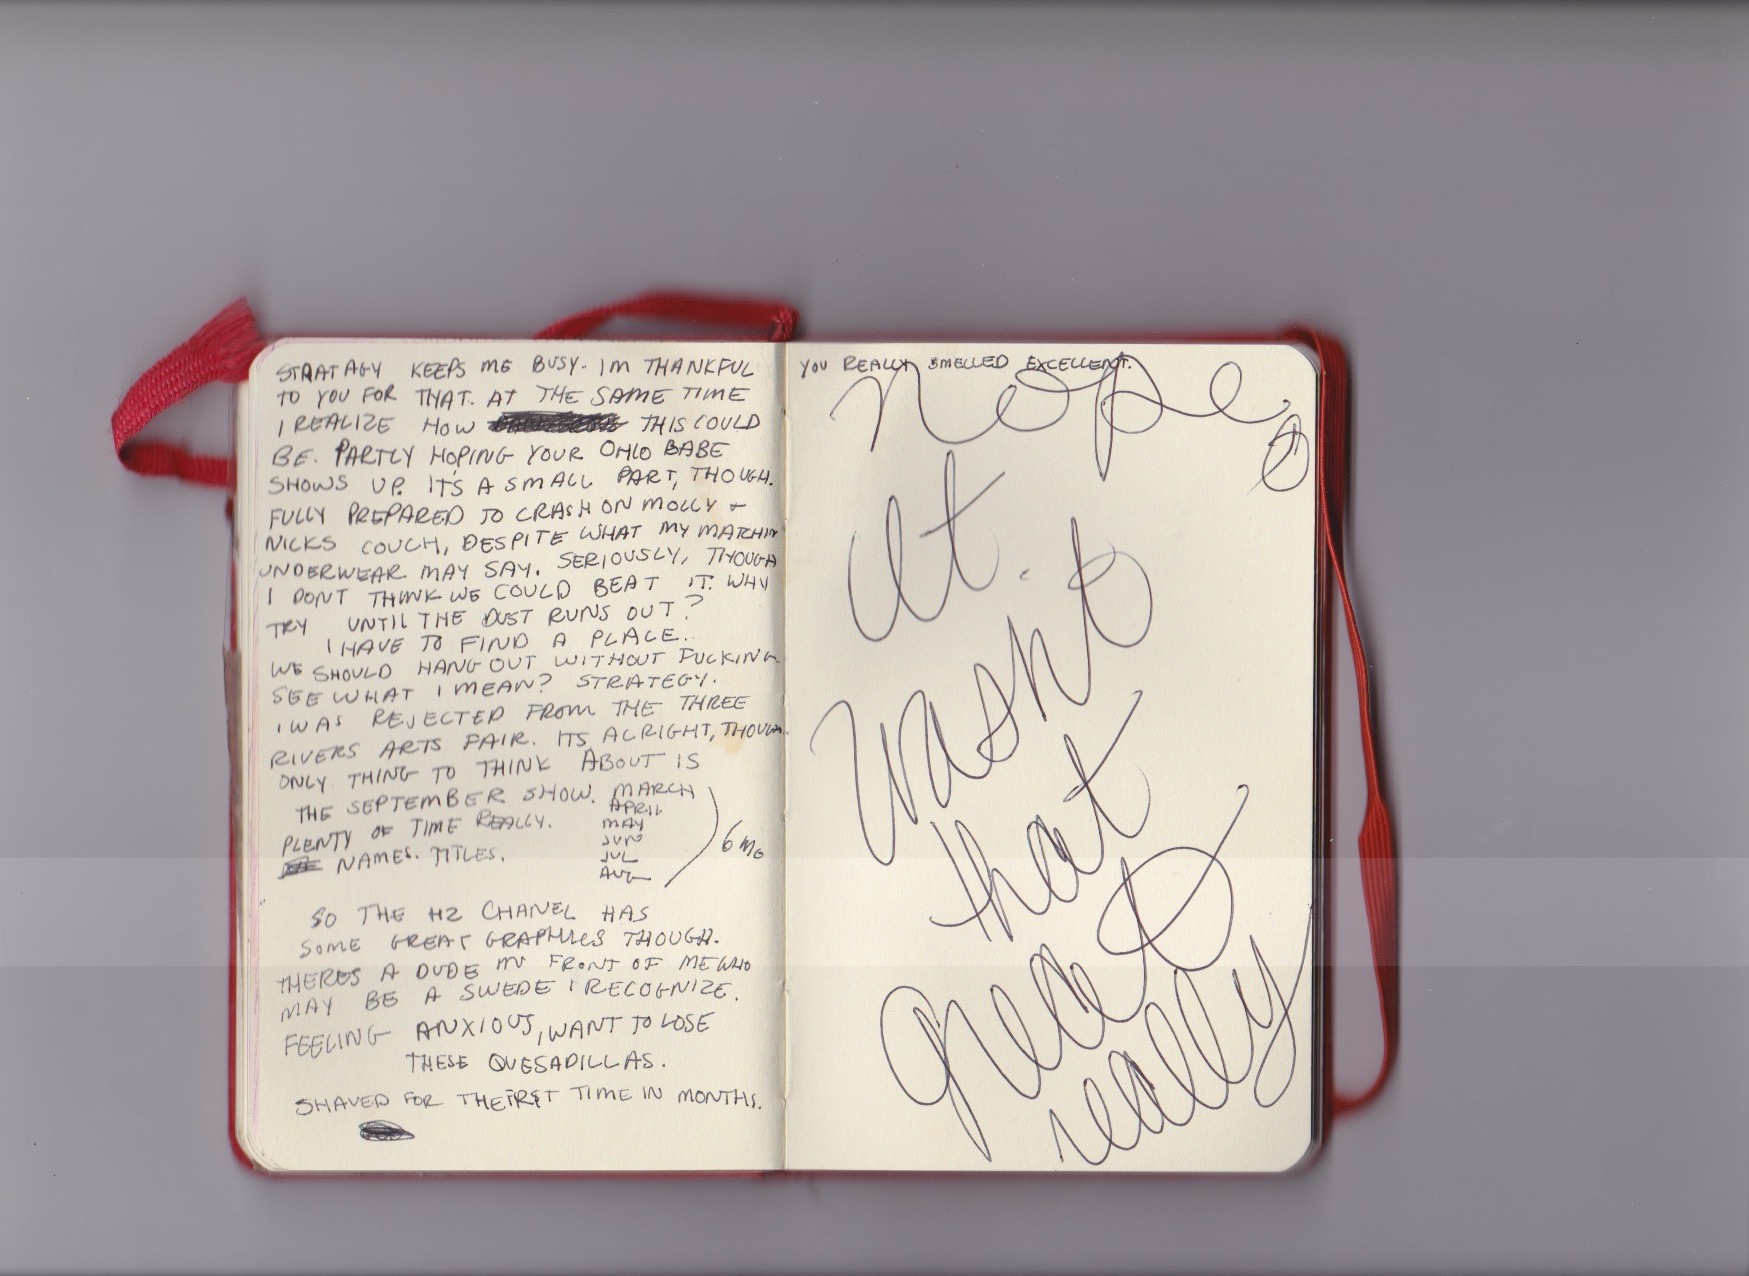 STRATAGY KEEPS ME BUSY. IM THANKFUL
TO YOU FOR THAT. AT THE SAME TIME
I REALIZE HOW THIS COULD
BE. PARTLY HOPING YOUR OHIO BABE
SHOWS UP. IT'S A SMALL PART, THOUGH.
FULLY PREPARED TO CRASH ON MOLLY +
NICKS COUCH, DESPITE WHAT MY MATCHIN
UNDERWEAR MAY SAY. SERIOUSLY, THOUGH
I DONT THINK WE COULD BEAT IT. WHY
TRY UNTIL THE DUST RUNS OUT?
I HAVE TO FIND A PLACE.
WE SHOULD HANG OUT WITHOUT FUCKING
SEE WHAT I MEAN? STRATEGY.
I WAS REJECTED FROM THE THREE
RIVERS ARTS FAIR. ITS ALRIGHT, THOUGH.
ONLY THING TO THINK ABOUT IS
THE SEPTEMBER SHOW. MARCH
APRIL
PLENTY OF TIME REALLY. MAY
JUN
NAMES. TITLES. JUL
AUG
6 MO
SO THE H2 CHANEL HAS
SOME GREAT GRAPHICS THOUGH.
THERES A DUDE IN FRONT OF ME WHO
MAY BE A SWEDE I RECOGNIZE.
FEELING ANXIOUS, WANT TO LOSE
THESE QUESADILLAS.
SHAVED FOR THE FIRST TIME IN MONTHS.
YOU REALLY SMELLED EXCELLENT.
nope
it.
wasn't
that
great
really